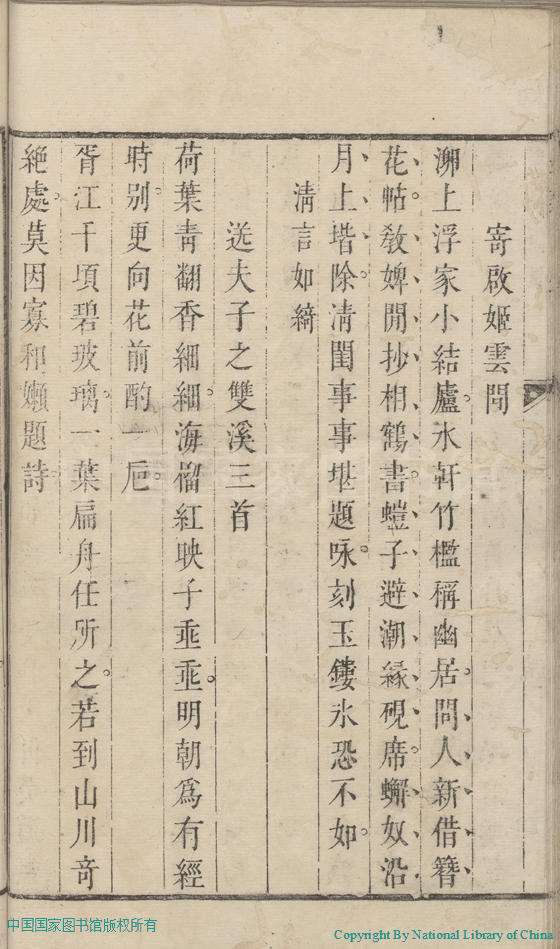 寄啟姬雲間
淵上浮家小結廬氷軒竹檻稱幽居問人新借簪
花帖敎婢閒抄相鶴書螘子避潮緣硯席蠏奴沿
月上堦除淸閨事事堪題咏刻玉鏤氷恐不如
淸言如綺
送夫子之雙溪三首
荷葉靑翻香細細海榴紅映子垂垂明朝爲有經
時别更向花前酌一巵
胥江千頃碧玻璃一葉扁舟任所之若到山川奇
絕處莫因寡和嬾題詩
中国国家图书馆版权所有
Copyright By National Library of China